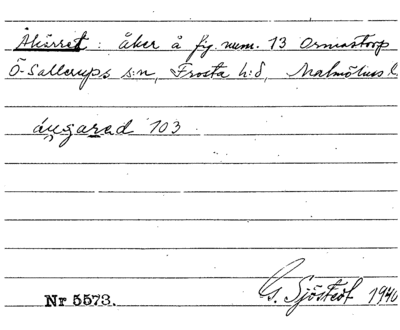 Åkärret: åker å fig. num. 13 Ormastorp
Ö-Sallerups s:n, Frosta h:d, Malmöhus l.
áŋgarad 103
Nr 5573.
G. Sjöstedt 1940